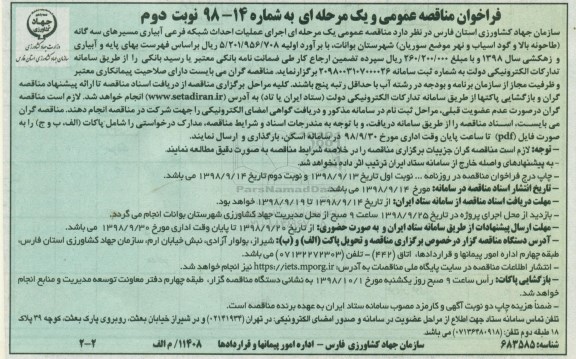 فراخوان مناقصه عمومی و یک مرحله ای به شماره ۱۴-۹۸ نوبت دوم
سازمان جهاد کشاورزی استان فارس در نظر دارد مناقصه عمومی یک مرحله ای اجرای عملیات احداث شبکه فرعی آبیاری مسیرهای سه گانه
(طاحونه بالا و گود اسیاب و نهر موضع سوریان) شهرستان بوانات، با برآورد اولیه ۵/۲۰۱/۹۵۶/۷۰۸ ریال براساس فهرست بهای پایه و آبیاری
و زهکشی سال ۱۳۹۸ و با مبلغ ۲۶۰/۲۰۰/۰۰۰ ریال سپرده تضمین ارجاع کار طی ضمانت نامه بانکی معتبر یا رسید بانکی را از طریق سامانه
تدارکات الکترونیکی دولت به شماره ثبت سامانه برگزار نماید. مناقصه گران می بایست دارای صلاحیت پیمانکاری معتبر
و ظرفیت مجاز از سازمان برنامه و بودجه در رشته آب با حداقل رتبه پنج باشند. کلیه مراحل برگزاری مناقصه از دریافت اسناد مناقصه تا ارائه پیشنهاد مناقصه
گران و بازگشایی پاکتها از طریق سامانه تدارکات الکترونیکی دولت (ستاد ایران یا تاد) به آدرس (www.setadiran.ir) انجام خواهد شد. لازم است مناقصه
گران درصورت عدم عضویت قبلی، مراحل ثبت نام در سامانه مذکور و دریافت گواهی امضای الکترونیکی را جهت شرکت در مناقصه انجام دهند. مناقصه گران
می بایست، اسناد مناقصه را از طریق سامانه دریافت، و با توجه به مندرجات اسناد و شرایط مناقصه، مدارک درخواستی را شامل پاکات (الف، ب و ج) را به
صورت فایل (pdf) تا ساعت پایان وقت اداری مورخ ۹۸/۹/۳۰ در سامانه اسکن، بارگذاری و ارسال نمایند.
- توجه: لازم است مناقصه گران جزییات برگزاری مناقصه را در خلاصه شرایط مناقصه به صورت دقیق مطالعه نمایند.
- به پیشنهادهای واصله خارج از سامانه ستاد ایران ترتیب اثر داده نخواهد شد.
- چاپ درج فراخوان مناقصه در روزنامه ... نوبت اول تاریخ ۱۳۹۸/۹/۱۳ و نوبت دوم تاریخ ۱۳۹۸/۹/۱۴ می باشد.
- تاریخ انتشار اسناد مناقصه در سامانه: مورخ ۱۳۹۸/۹/۱۴ می باشد.
- مهلت دریافت اسناد مناقصه از سامانه ستاد ایران: از تاریخ ۱۳۹۸/۹/۱۴ تا ۱۳۹۸/۹/۱۹ خواهد بود.
- بازدید از محل اجرای پروژه در تاریخ ۱۳۹۸/۹/۲۵ ساعت ۹ صبح از محل مدیریت جهاد کشاورزی شهرستان بوانات انجام می گردد.
- مهلت ارسال پیشنهادات از طریق سامانه ستاد ایران و به صورت حضوری: از تاریخ ۱۳۹۸/۹/۲۰ تا پایان وقت اداری مورخ ۱۳۹۸/۹/۳۰ می باشد.
- آدرس دستگاه مناقصه گزار درخصوص برگزاری مناقصه و تحویل پاکت (الف) و (ب): شیراز، بولوار آزادی، نبش خیابان ارم، سازمان جهاد کشاورزی استان فارس،
طبقه چهارم اداره امور پیمانها و قراردادها، اتاق (۴۴۲) - تلفن (۰۷۱۳۲۲۷۲۳۰۳) می باشد.
- انتشار اطلاعات مناقصه در سایت پایگاه ملی مناقصات به آدرس: https://iets.mporg.ir نیز انجام خواهد شد.
- بازگشایی پاکات: رأس ساعت ۹ صبح روز یکشنبه مورخ ۱۳۹۸/۱۰/۱ به نشانی دستگاه مناقصه گزار، طبقه چهارم دفتر معاونت توسعه مدیریت و منابع انجام
خواهد شد.
- ضمناً هزینه چاپ دو نوبت آگهی و کارمزد مصوب سامانه ستاد ایران به عهده برنده مناقصه است.
تلفن تماس سامانه ستاد جهت اطلاع از مراحل عضویت در سامانه و صدور امضای الکترونیکی: در تهران (۰۲۱۴۱۹۳۴) و در شیراز خیابان بعثت، روبروی پارک بعثت، کوچه ۳۹ پلاک
۱۸ طبقه دوم تلفن: (۰۷۱۳۶۴۸۰۹۱۸) می باشد
شناسه: ۶۸۳۵۸۵ سازمان جهاد کشاورزی فارس - اداره امور پیمانها و قراردادها ۱۱۴۰۸/م الف ۲-۲